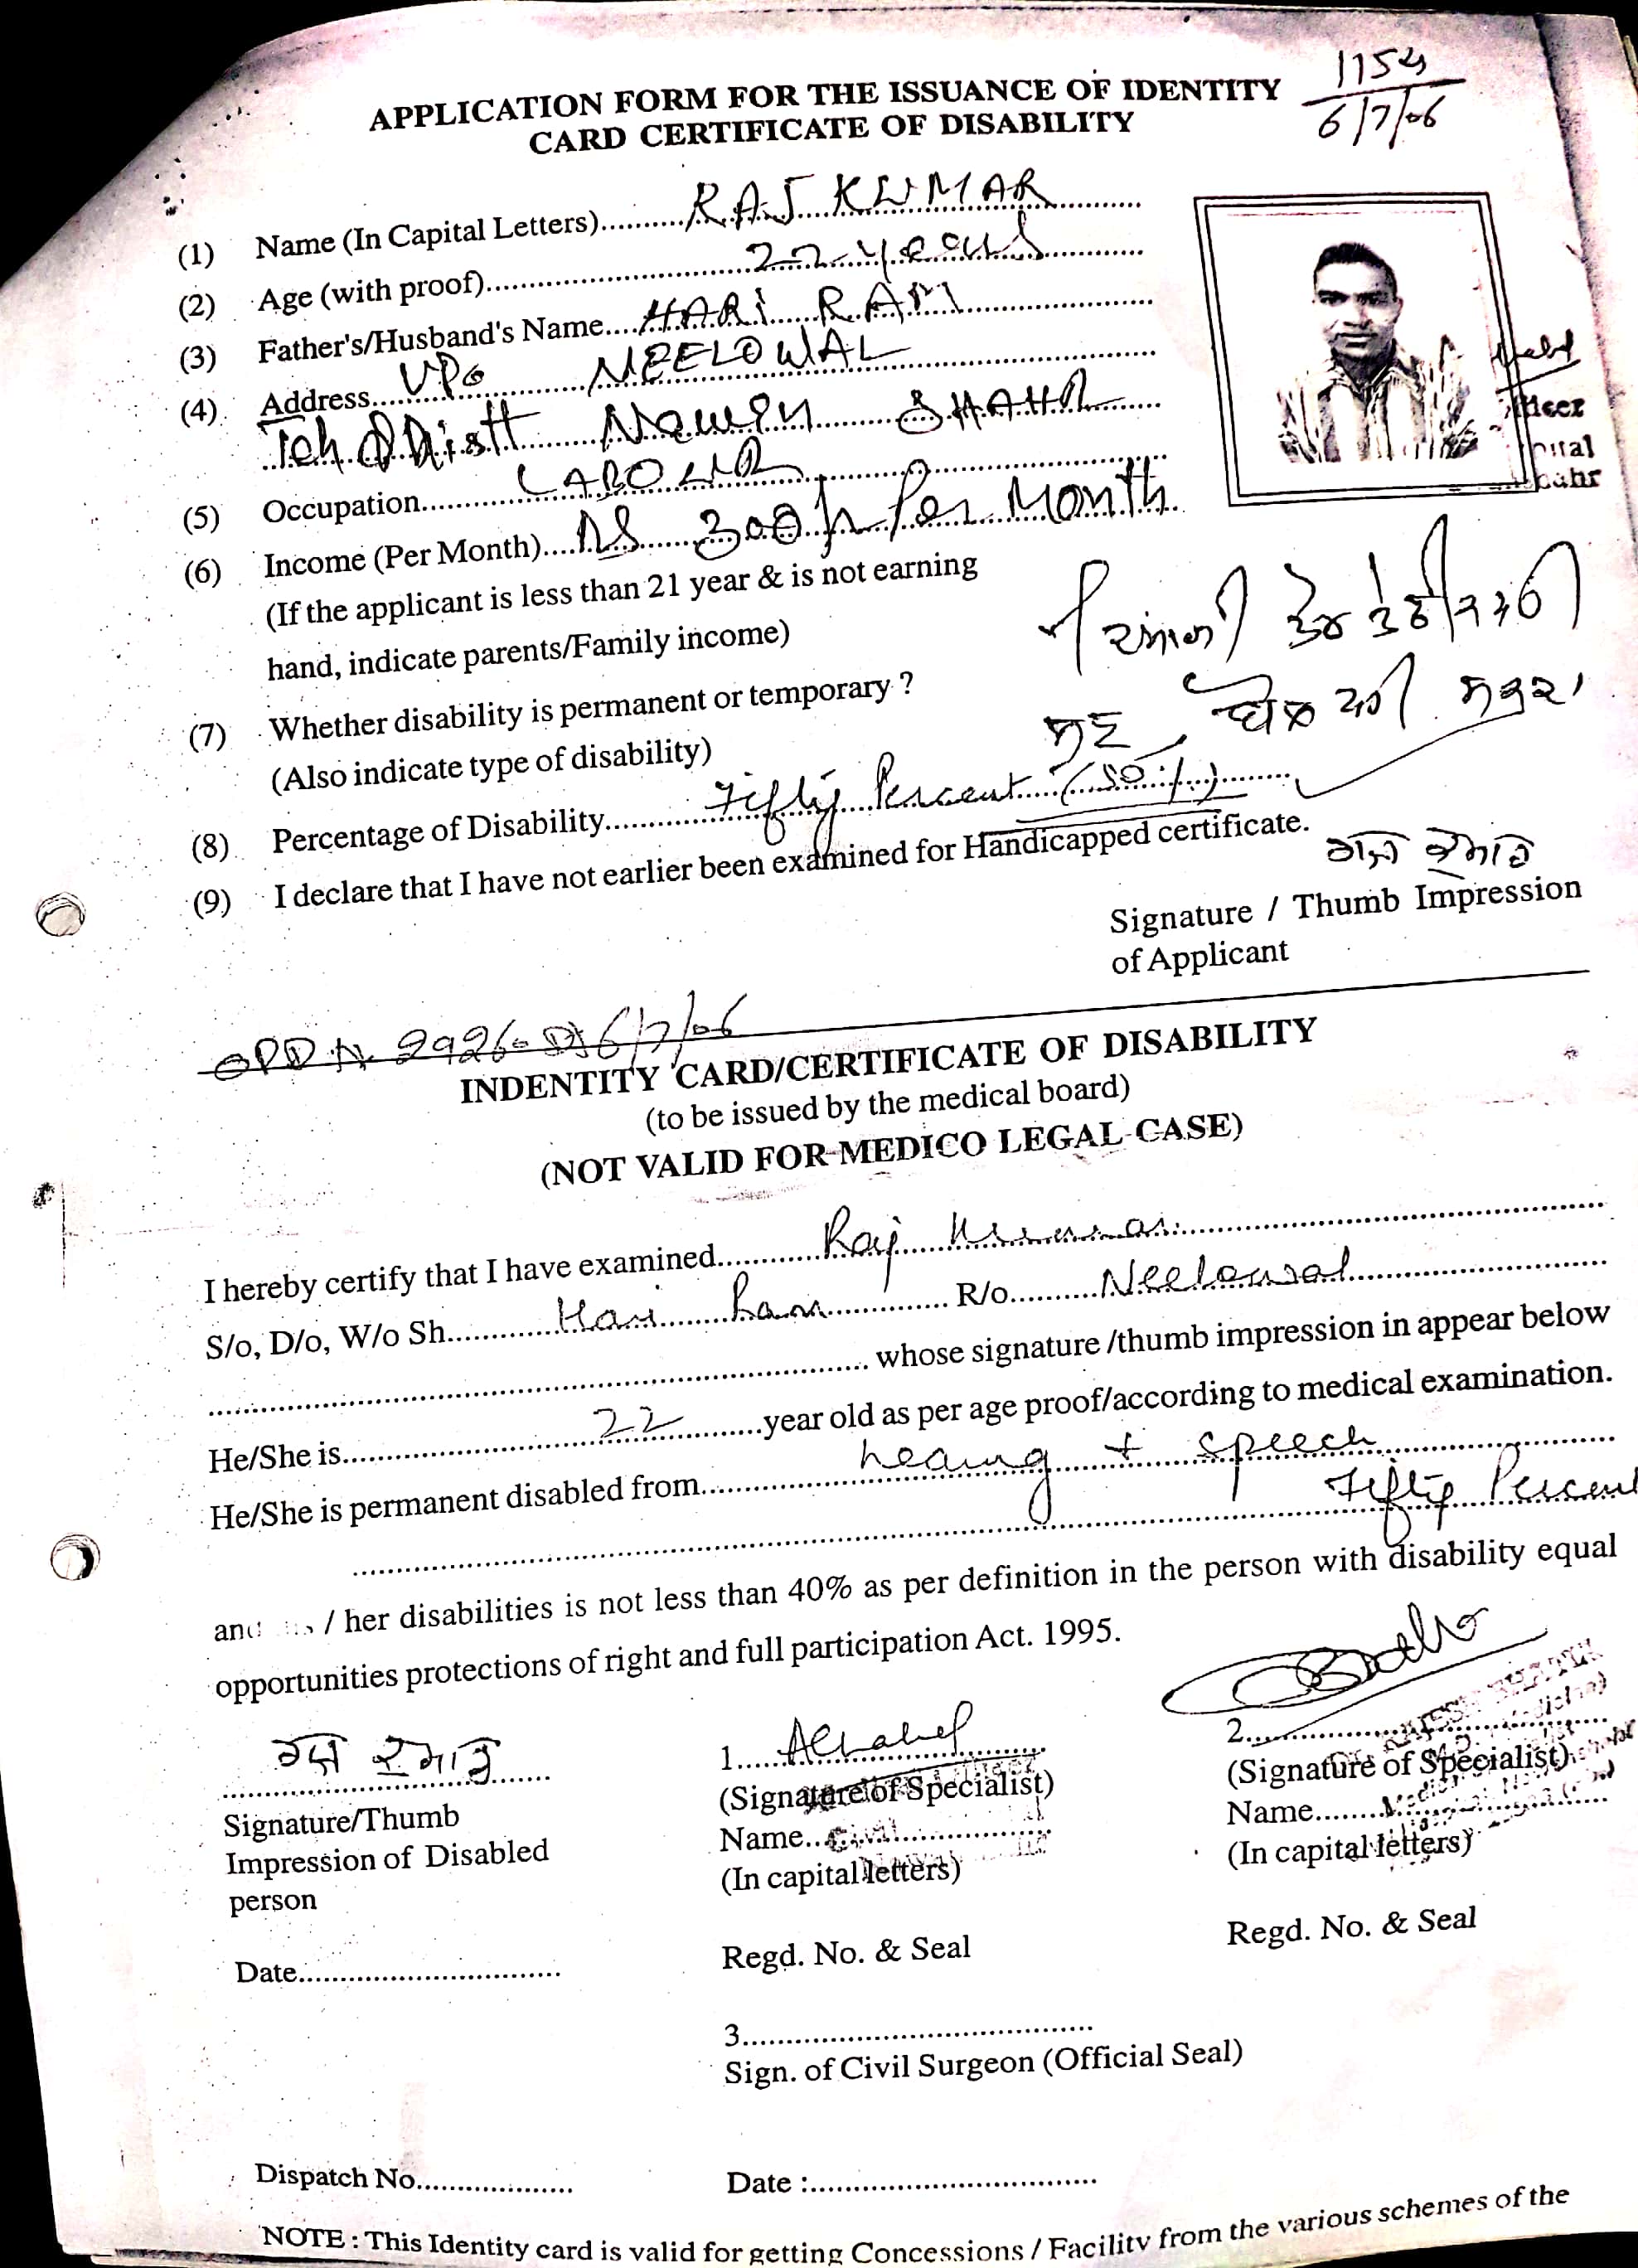 1154
6/7/06
APPLICATION FORM FOR THE ISSUANCE OF IDENTITY
CARD CERTIFICATE OF DISABILITY
(1) Name (In Capital Letters)..........RAJ KUMAR
(2) Age (with proof)..........22 years
(3) Father's/Husband's Name....HARI RAM
(4) Address....VPO NEELOWAL
Teh & Distt Nawan SHAHR
(5) Occupation..........LABOUR
(6) Income (Per Month)....RS 300/- Per Month
(If the applicant is less than 21 year & is not earning
hand, indicate parents/Family income)
(7) Whether disability is permanent or temporary ?
(Also indicate type of disability)
(8) Percentage of Disability..........Fifty Percent (50%)
(9) I declare that I have not earlier been examined for Handicapped certificate.
ਰਾਜ ਕੁਮਾਰ
Signature / Thumb Impression
of Applicant
OPD N. 2926 6/7/06
INDENTITY CARD/CERTIFICATE OF DISABILITY
(to be issued by the medical board)
(NOT VALID FOR MEDICO LEGAL CASE)
I hereby certify that I have examined..........Raj Kumar
S/o, D/o, W/o Sh..........Hari Ram.......... R/o..........Neelowal
.......... whose signature /thumb impression in appear below
He/She is..........22..........year old as per age proof/according to medical examination.
He/She is permanent disabled from..........hearing + speech
Fifty Percent
and / her disabilities is not less than 40% as per definition in the person with disability equal
opportunities protections of right and full participation Act. 1995.
ਰਾਜ ਕੁਮਾਰ
Signature/Thumb
Impression of Disabled
person
Date..........
1..........
(Signature of Specialist)
Name..........
(In capital letters)
Regd. No. & Seal
2..........
(Signature of Specialist)
Name..........
(In capital letters)
Regd. No. & Seal
3..........
Sign. of Civil Surgeon (Official Seal)
Dispatch No..........
Date :..........
NOTE : This Identity card is valid for getting Concessions / Facility from the various schemes of the